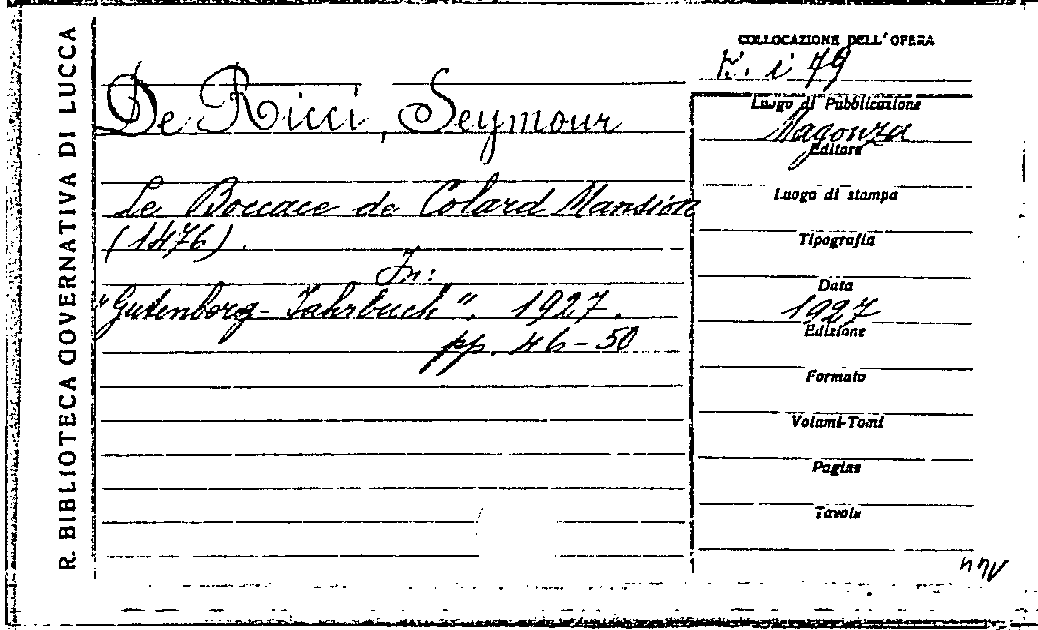 R. BIBLIOTECA GOVERNATIVA DI LUCCA
COLLOCAZIONE DELL'OPERA
i 79
De Ricci, Seymour
Le Boccace de Colard Mansion
(1476).
In:
"Gutenberg-Jahrbuch". 1927.
pp. 46-50
Luogo di Pubblicazione
Magonza
Editore
Luogo di stampa
Tipografia
Data
1927
Edizione
Formato
Volumi-Tomi
Pagine
Tavole